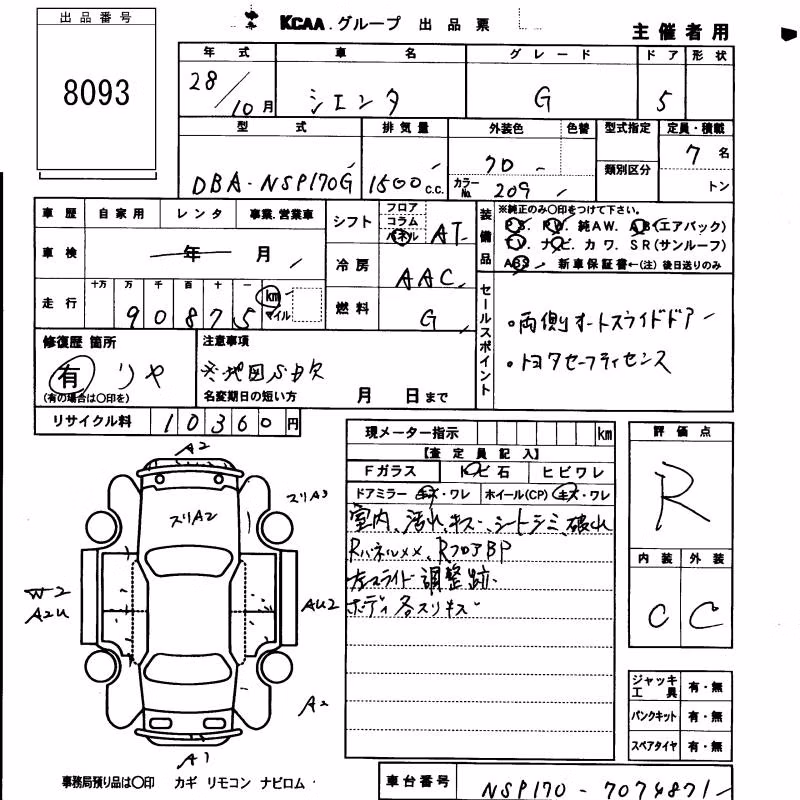 出品番号
8093
KCAA.グループ 出品票
主催者用
年式 車名 グレード ドア 形状
28/10月 シエンタ G 5
型式 排気量 外装色 色替 型式指定 定員・積載
DBA-NSP170G 1500 c.c. 70 類別区分 7名
カラーNo. 209 トン
車歴 自家用 レンタ 事業.営業車
シフト フロア コラム パネル AT
装備品
※純正のみ○印をつけて下さい。
P.S. P.W. 純AW. A.B(エアバック)
T.V. ナビ カワ. SR(サンルーフ)
ABS 新車保証書←(注)後日送りのみ
車検 年 月
冷房 AAC
走行 十万 万 千 百 十 一 km マイル
90875
燃料 G
セールスポイント
・両側オートスライドドア
・トヨタセーフティセンス
修復歴 箇所
有 リヤ
(有の場合は○印を)
注意事項
※地図SD欠
名変期日の短い方 月 日まで
リサイクル料 10360円
現メーター指示 km
【査定員記入】
Fガラス トビ石 ヒビワレ
ドアミラー キズ・ワレ ホイール(CP) キズ・ワレ
室内、汚れ、キズ、シートシミ、破れ
Rパネルメメ、RフロアBP
左スライド調整跡
ボディ各スリキズ
評価点
R
内装 外装
C C
A2
スリA3
スリA2
W2
A2U
AU2
A2
A1
ジャッキ工具 有・無
パンクキット 有・無
スペアタイヤ 有・無
事務局預り品は○印 カギ リモコン ナビロム
車台番号 NSP170-7074871